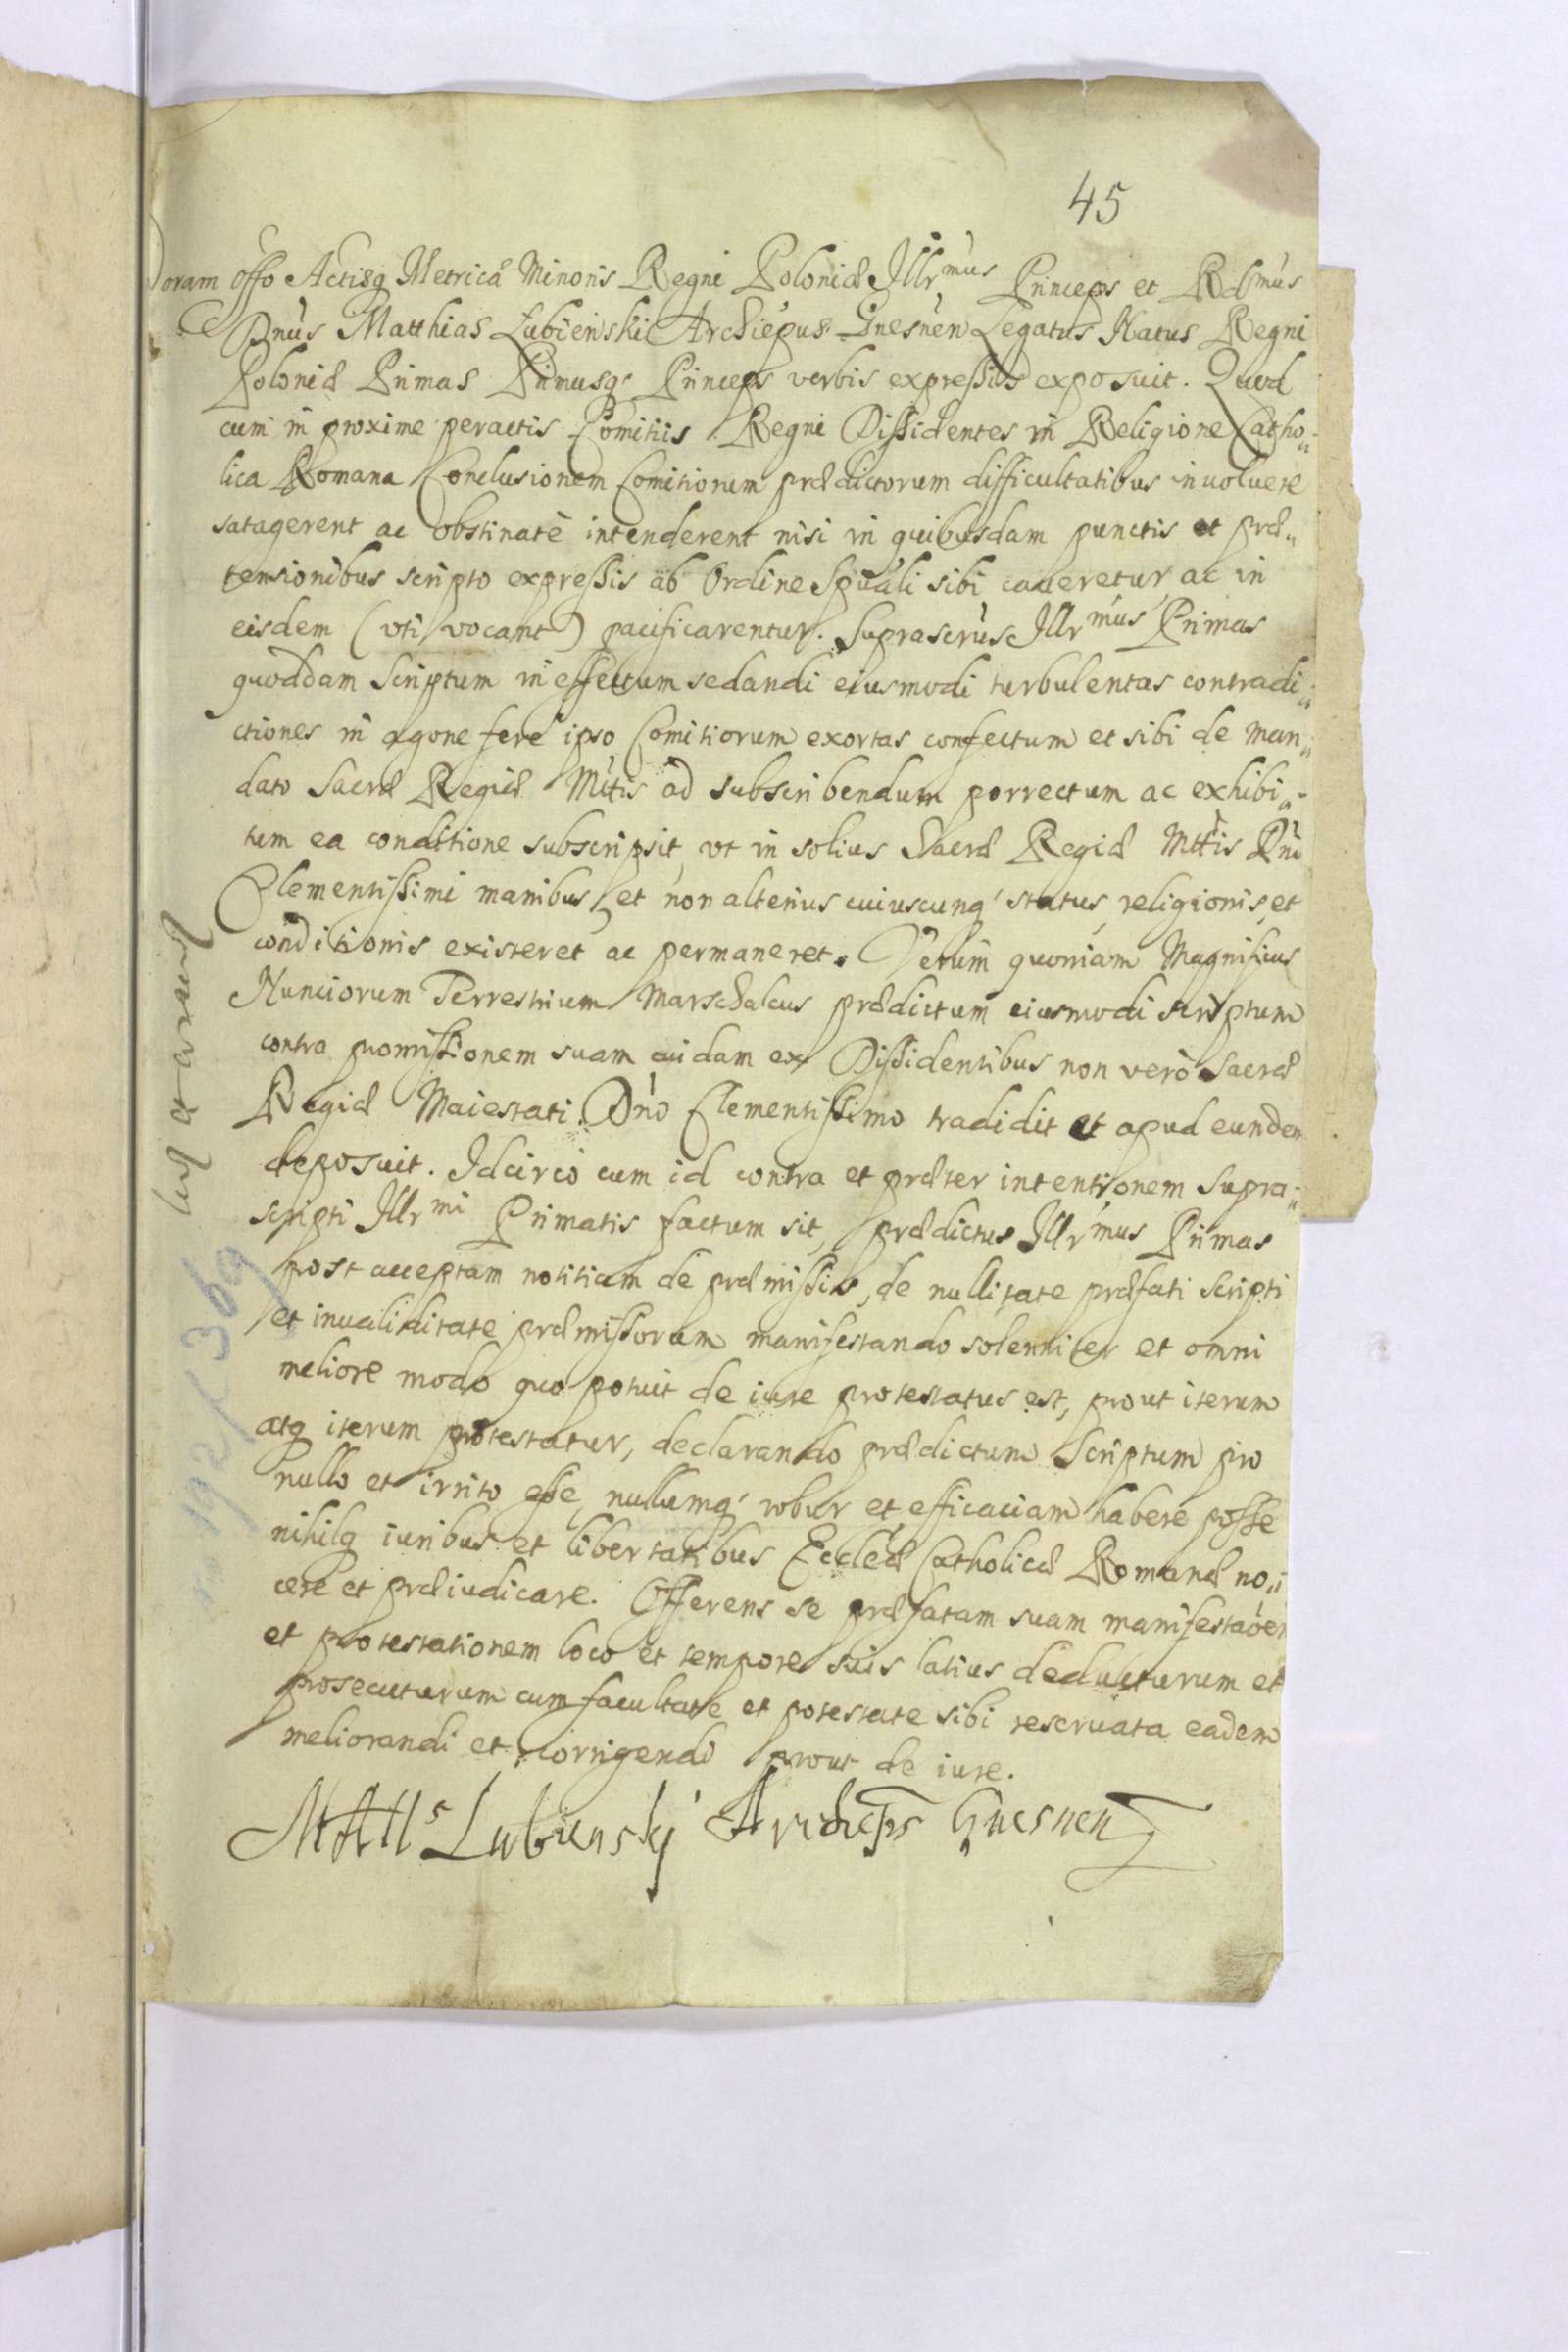 45
Coram Offo Actisq Metricæ Minoris Regni Poloniæ Illrmus Princeps et Rdmus
Dnus Matthias Łubieński Archiepus Gnesnen Legatus Natus Regni
Poloniæ Primas Primusq Princeps verbis expressis exposuit. Quod
cum in proxime peractis Comitiis Regni Dissidentes in Religione Catho„
lica Romana Conclusionem Comitiorum prædictorum difficultatibus inuoluere
satagerent ac obstinatè intenderent nisi in quibusdam punctis et præ„
tensionibus scripto expressis ab Ordine Spuali sibi caueretur, ac in
eisdem (vti vocant) pacificarentur. Suprascrus Illrmus Primas
quoddam Scriptum in effectum sedandi eiusmodi turbulentas contradi„
ctiones in agone ferè ipso Comitiorum exortas confectum et sibi de Man„
dato Sacræ Regiæ Mttis ad subscribendum porrectum ac exhibi„
tum ea conditione subscripsit, vt in solius Sacræ Regiæ Mttis Dni
Clementissimi manibus, et non alterius cuiuscunq status, religionis, et
conditionis existeret ac permaneret. Verùm quoniam Magnificus
Nunciorum Terrestrium Marschalcus prædictum eiusmodi scriptum
contra promissionem suam cuidam ex Dissidentibus non verò Sacræ
Regiæ Maiestati Dno Clementissimo tradidit et apud eundem
deposuit. Idcirco cum id contra et præter intentionem Supra„
scripti Illrmi Primatis factum sit, prædictus Illrmus Primas
post acceptam notitiam de præmissis, de nullitate præfati Scripti
et inualiditate præmissorum manifestando solenniter et omni
meliore modo quo potuit de iure protestatus est, prout iterum
atq iterum protestatur, declarando prædictum Scriptum pro
nullo et irrito esse, nullumq robur et efficaciam habere posse
nihilq iuribus et libertatibus Ecclæ Catholicæ Romanæ no„
cere et præiudicare. Offerens se præfatam suam manifestaoem
et protestationem loco et tempore suis latius deducturum et
prosecuturum cum facultate et potestate sibi reseruata eadem
meliorandi et corrigendi prout de iure.
Matts Lubiensky Archieps Gnesnen